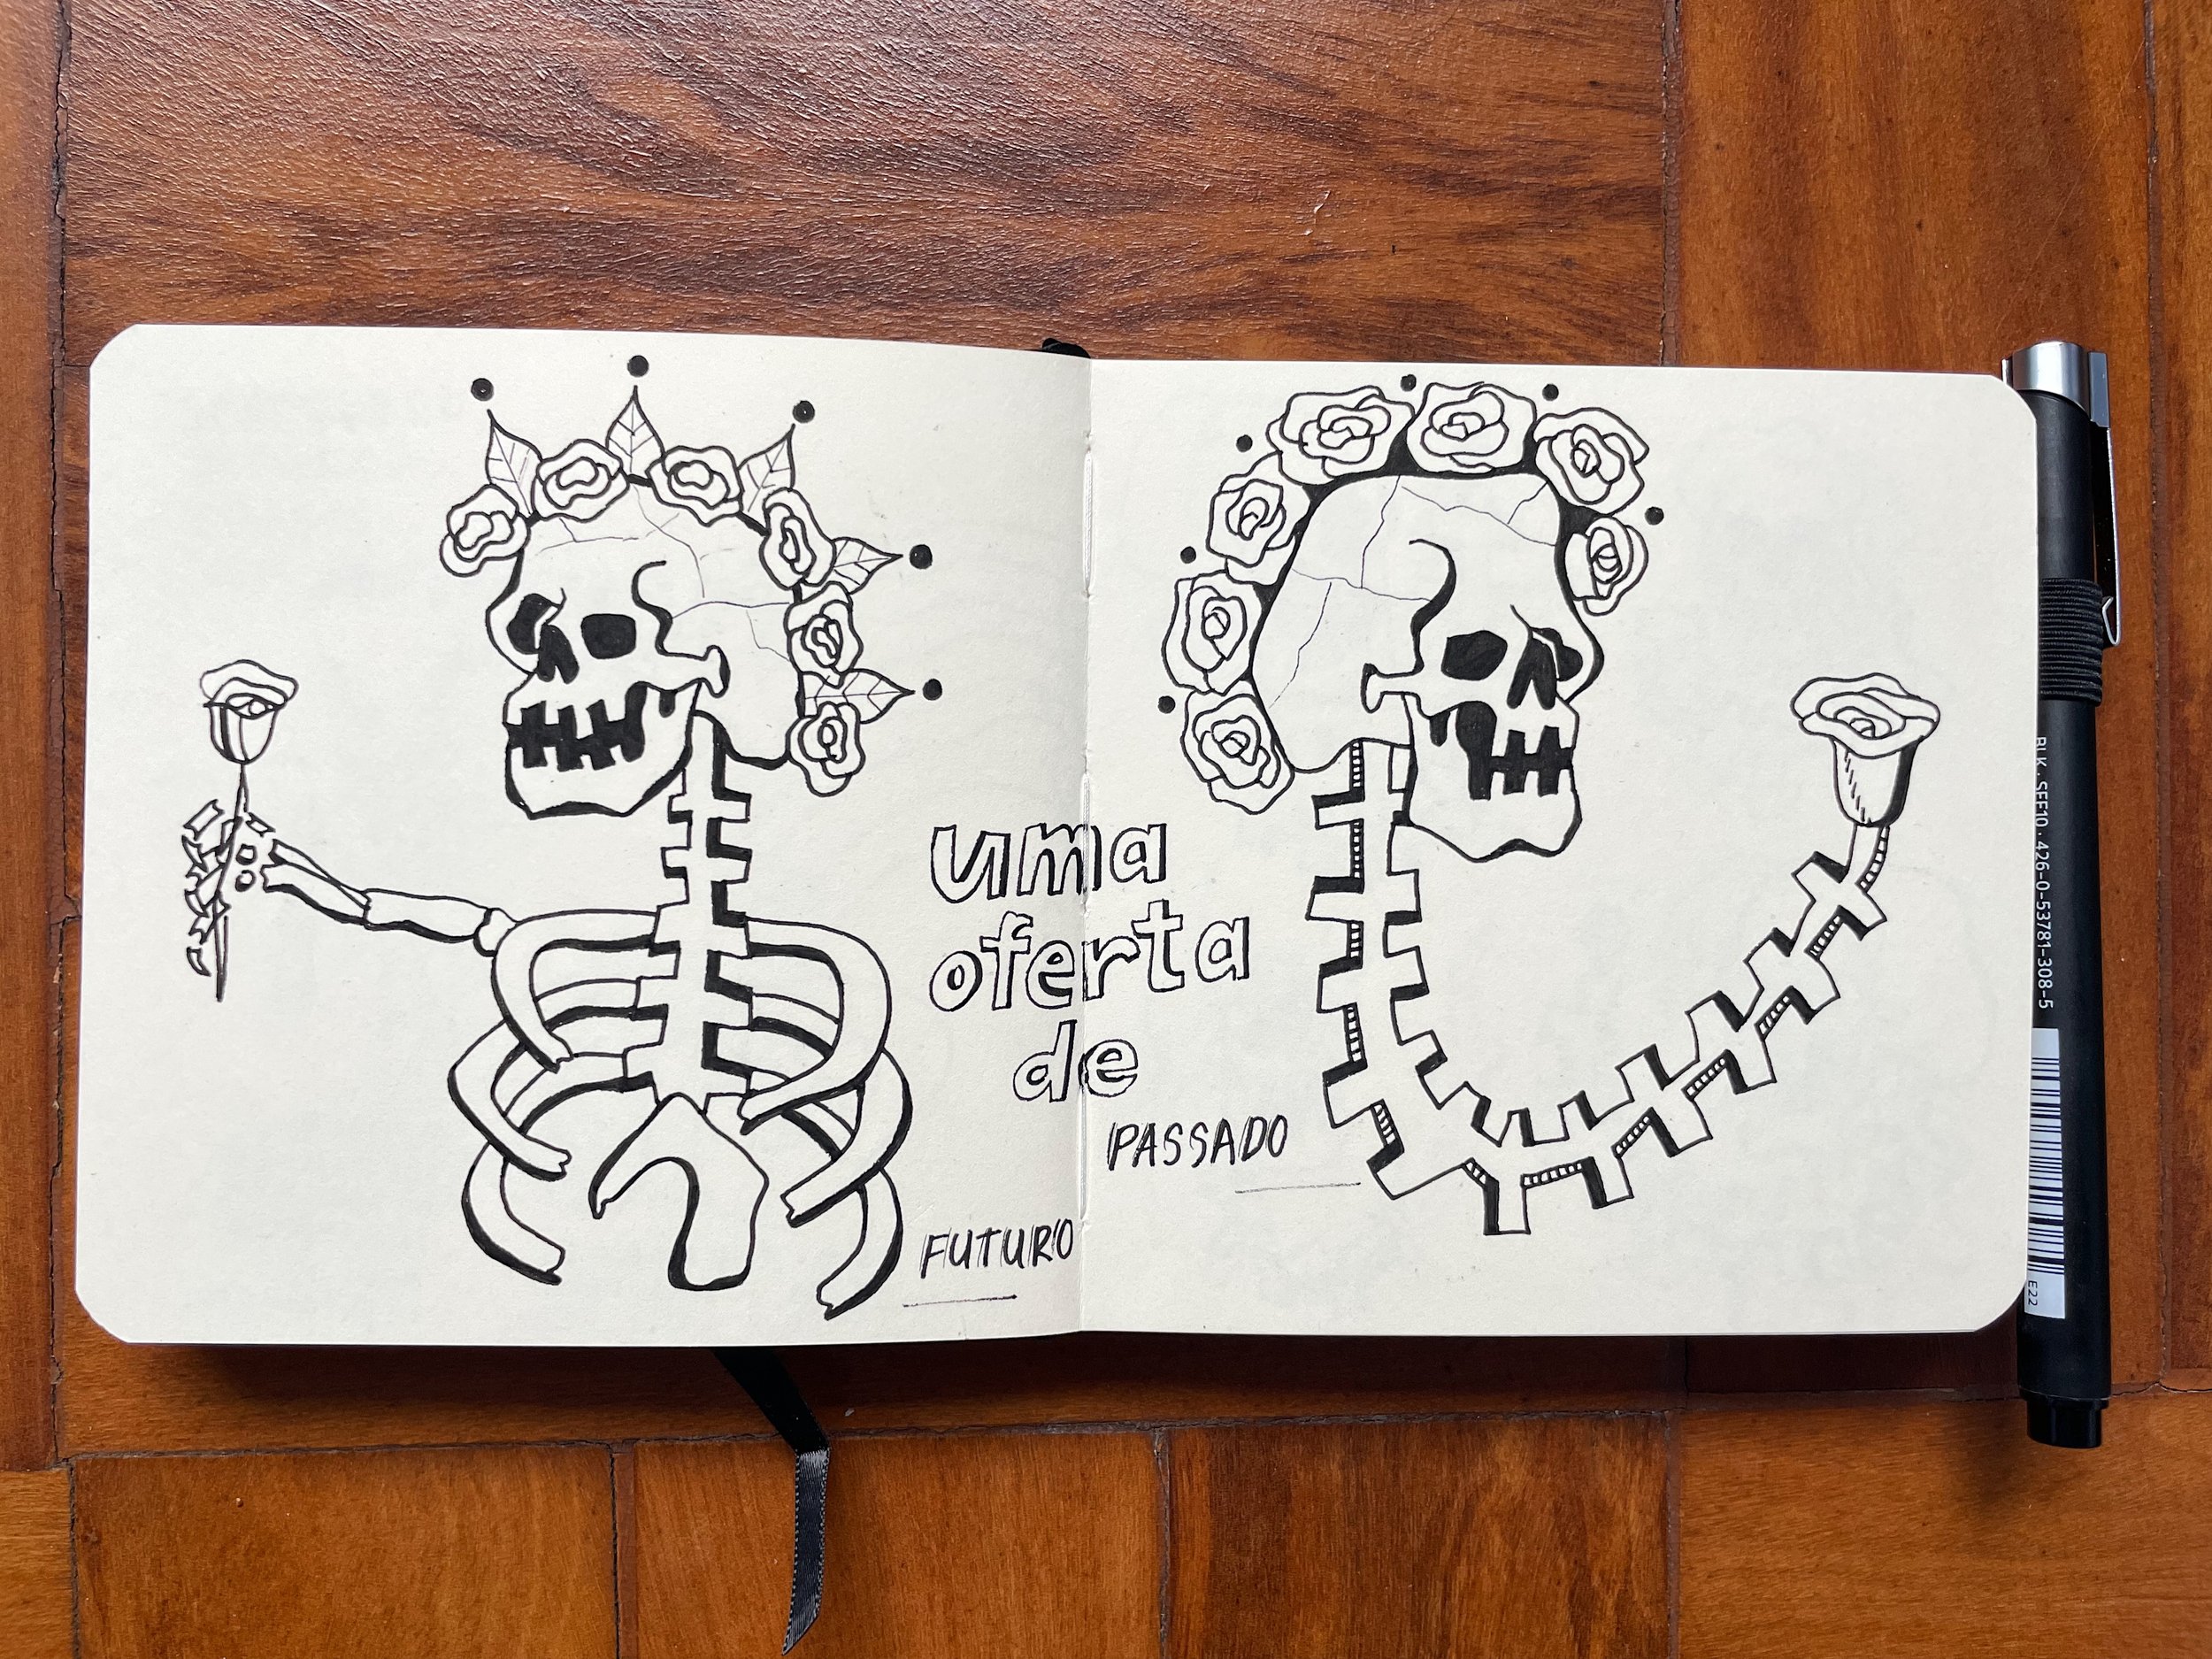 uma
oferta
de
PASSADO
FUTURO
BLK. SFE10. 426-0-53781-308-5
E22